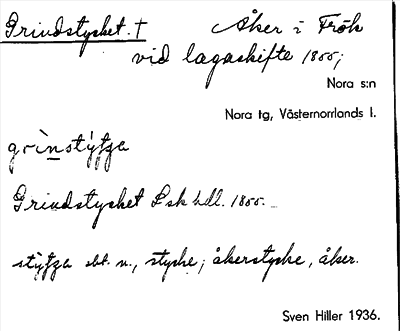 Grindstycket. † Åker i Frök
vid lagaskifte 1855;
Nora s:n
Nora tg, Västernorrlands l.
grìnstýʃʒa
Grindstycket Lsk hdl. 1855.
stýʃʒa sbt. n., stycke; åkerstycke, åker.
Sven Hiller 1936.